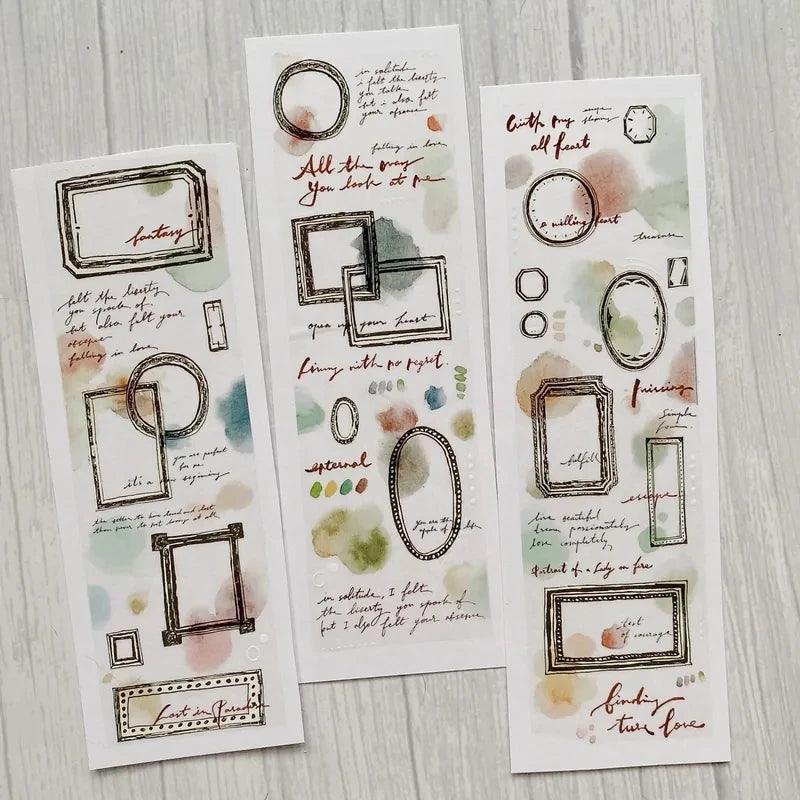 fantasy
felt the liberty
you spoke of
but also felt your
absence
falling in love
you are perfect
for me
it's a new beginning
than never to not
at all
Lost in Paradise
in solitude
i felt the liberty
you talk
but i also felt
your absence
falling in love
All the way
You look at me
open up your heart
Living with no regret.
external
You are the
apple of life
in solitude, I felt
the liberty you spoke of
but I also felt your absence
With my
all heart
escape
a willing heart
treasure
missing
Simple
fulfill
escape
live beautiful
dream passionately
love completely,
Portrait of a Lady on fire
test
of courage
finding
ture love